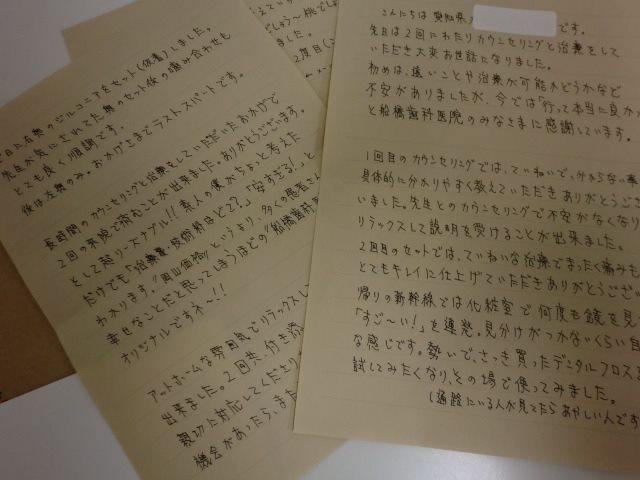 こんにちは 愛知県
です。
先日は2回にわたりカウンセリングと治療をして
いただき大変お世話になりました。
初めは、遠いことや治療が可能かどうかなど
不安がありましたが、今では「行って本当に良かっ
と船橋歯科医院のみなさまに感謝しています。
1回目のカウンセリングでは、ていねいで、分からない事
具体的に分かりやすく教えていただき ありがとうござ
いました。先生とのカウンセリングで不安がなくなり
リラックスして説明を受けることが出来ました。
2回目のセットでは、ていねいな治療でまったく痛みも
とてもキレイに仕上げていただきありがとうござい
帰りの新幹線では化粧室で何度も鏡を見
「すご〜い!」を連発。見分けがつかないくらい自
な感じです。勢いで、さっき買ったデンタルフロスを
試してみたくなり、その場で使ってみました。
(通路にいる人が見てたら あやしい人です
日に右奥のジルコニアをセット(仮着)しました。
先生が気にされてた奥のセット後の噛み合わせも
とても良く順調です。
後は左奥のみ。おかげさまでラストスパートです。
長時間のカウンセリングと治療をしていただいたおかげで
2回の来院で済むことが出来ました。ありがとうございます。
そして超リーズナブル!! 素人の僕がちょっと考えた
だけでも「治療費・技術料ほどで??」「安すぎる!」と
わかります。"岡山価格"というより、多くの患者さん
幸せなことだと思ってしまうほどの"船橋歯科
オリジナルですネ〜!!
アットホームな雰囲気でリラックスし
出来ました。2回共、付き添
親切に対応してくださり
機会があったら、また
2度目(
ました。